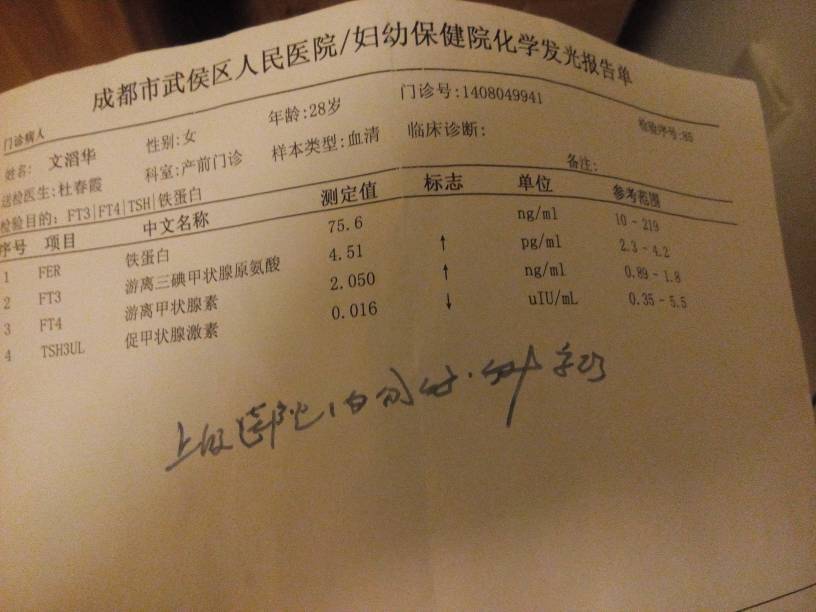 成都市武侯区人民医院/妇幼保健院化学发光报告单
门诊病人
姓名: 文滔华 性别:女 年龄:28岁 门诊号:1408049941 检验序号:85
送检医生:杜春霞 科室:产前门诊 样本类型:血清 临床诊断: 备注:
检验目的: FT3|FT4|TSH|铁蛋白
序号 项目 中文名称 测定值 标志 单位 参考范围
1 FER 铁蛋白 75.6 ng/ml 10 - 219
2 FT3 游离三碘甲状腺原氨酸 4.51 ↑ pg/ml 2.3 - 4.2
3 FT4 游离甲状腺素 2.050 ↑ ng/ml 0.89 - 1.8
4 TSH3UL 促甲状腺激素 0.016 ↓ uIU/mL 0.35 - 5.5
上级医院内分泌